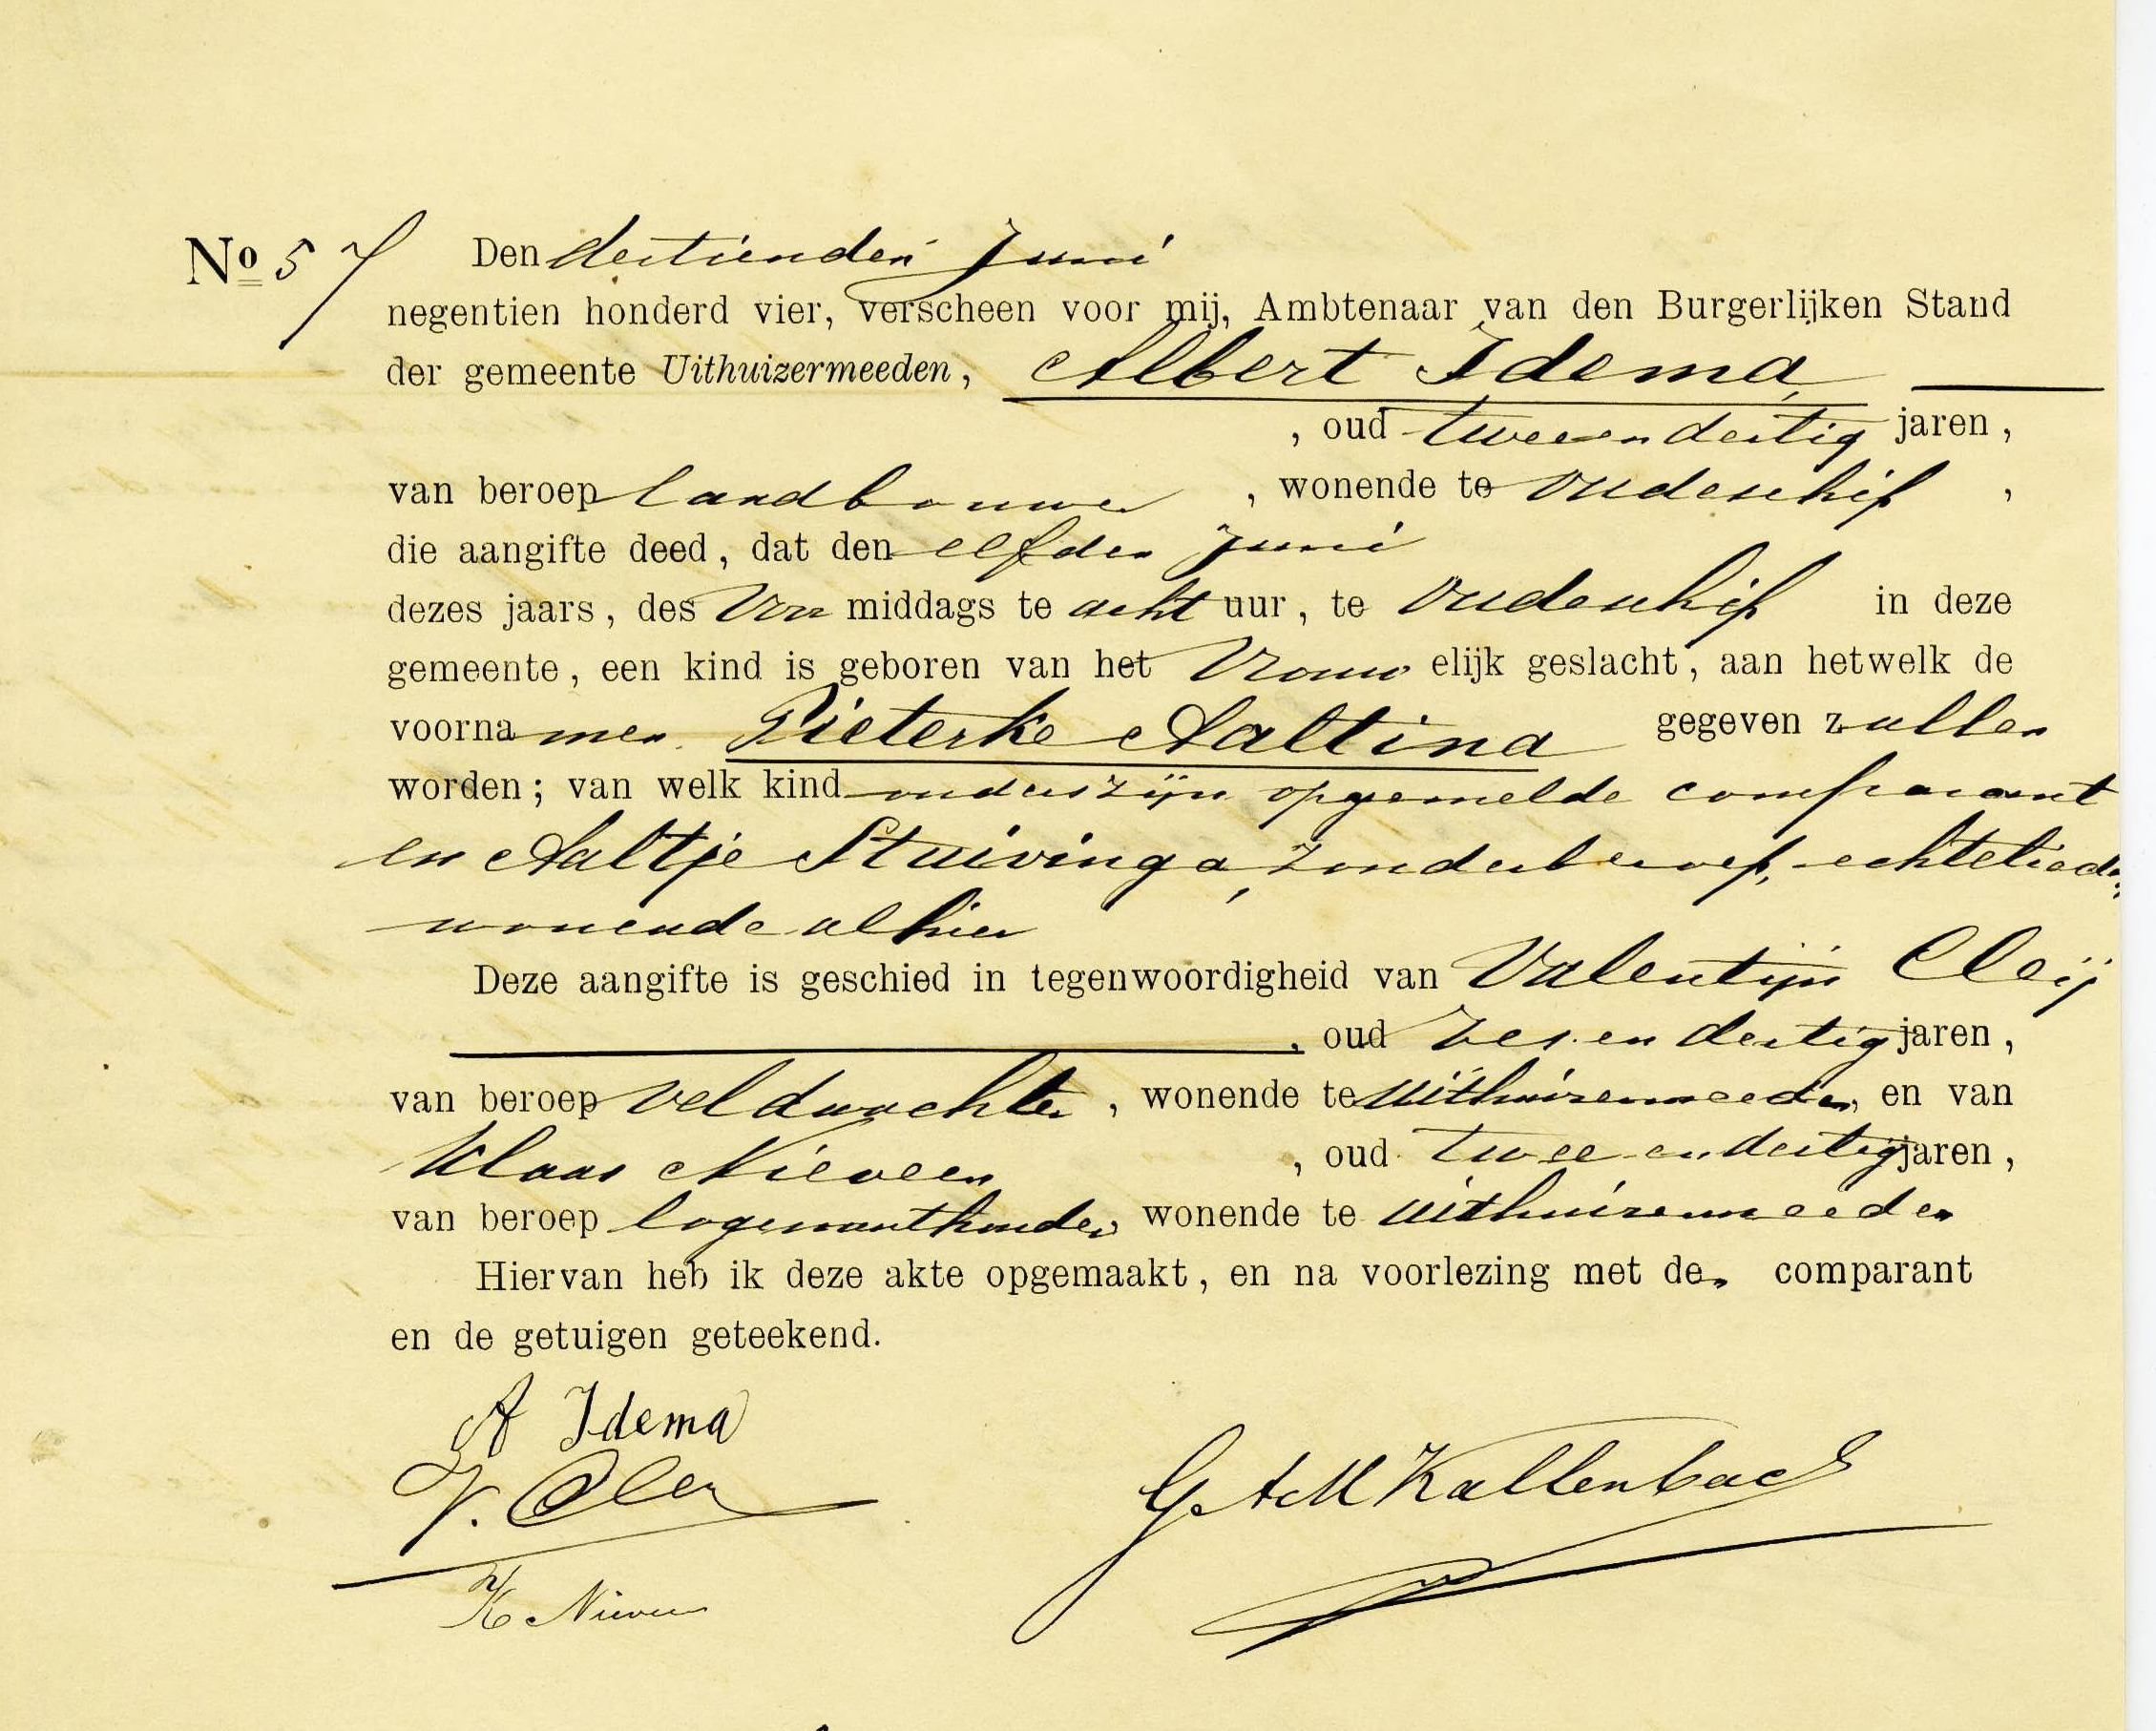 No 57 Den dertienden Juni
negentien honderd vier, verscheen voor mij, Ambtenaar van den Burgerlijken Stand
der gemeente Uithuizermeeden, Albert Idema
, oud tweeendertig jaren,
van beroep landbouwer, wonende te Oudeschip,
die aangifte deed, dat den elfden Juni
dezes jaars, des Voor middags te acht uur, te Oudeschip in deze
gemeente, een kind is geboren van het Vrouw elijk geslacht, aan hetwelk de
voorna men Pieterke Aaltina gegeven zullen
worden; van welk kind ouders zijn opgemelde comparant
en Aaltje Stuivinga, zonder beroep, echtelieden,
wonende alhier
Deze aangifte is geschied in tegenwoordigheid van Valentijn Cleij
, oud zes en dertig jaren,
van beroep veldwachter, wonende te Uithuizermeeden, en van
Klaas Nieveen, oud twee en dertig jaren,
van beroep logementhouder, wonende te Uithuizermeeden
Hiervan heb ik deze akte opgemaakt, en na voorlezing met den comparant
en de getuigen geteekend.
A Idema
V. Cleij
K Nieveen
G A M Kallenbach